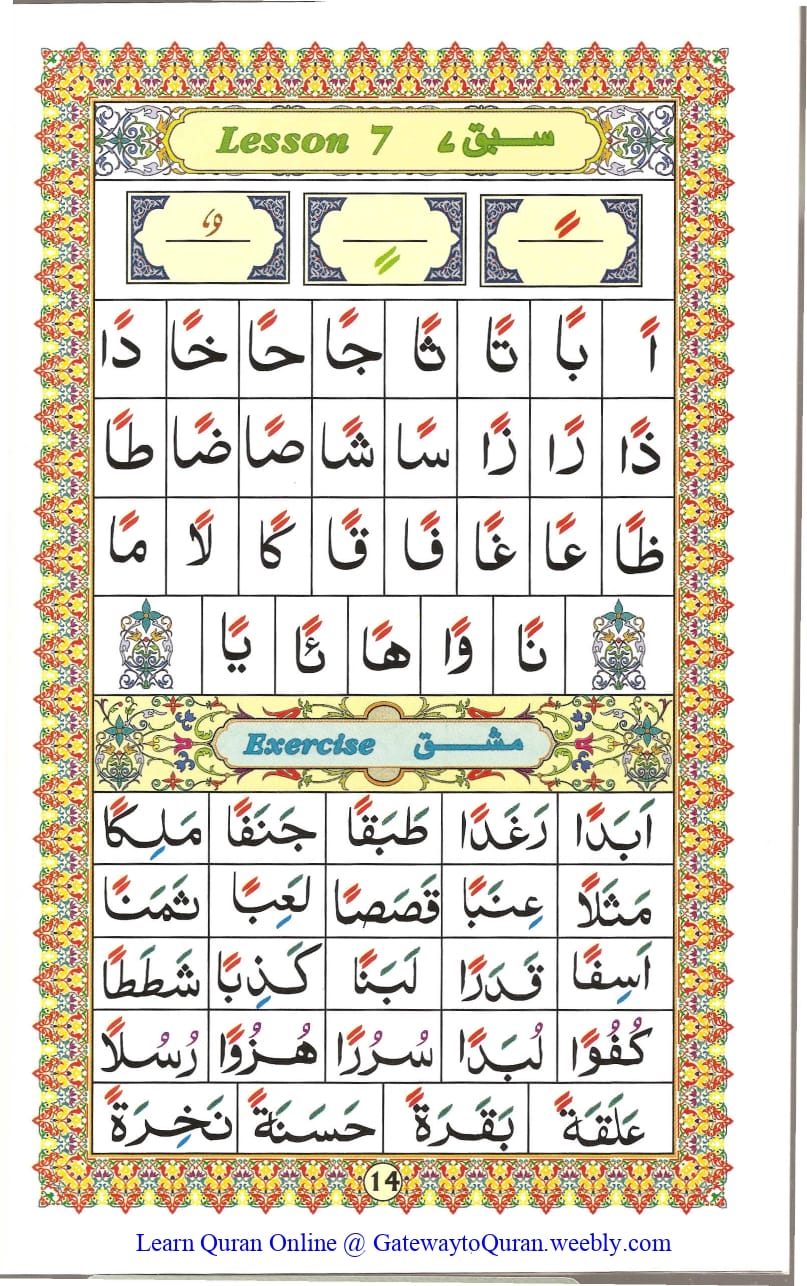 Lesson 7 سبق ۷
ً ٍ ٌ
اً بًا تًا ثًا جًا حًا خًا دًا
ذًا رًا زًا سًا شًا صًا ضًا طًا
ظًا عًا غًا فًا قًا كًا لًا مًا
نًا وًا هًا ئًا يًا
Exercise مشق
اَبَدًا رَغَدًا طَبَقًا جَنَفًا مَلِكًا
مَثَلًا عِنَبًا قَصَصًا لَعِبًا ثَمَنًا
اَسِفًا قَدَرًا لَبَنًا كَذِبًا شَطَطًا
كُفُوًا لُبَدًا سُرُرًا هُزُوًا رُسُلًا
عَلَقَةً بَقَرَةً حَسَنَةً نَخِرَةً
14
Learn Quran Online @ GatewaytoQuran.weebly.com